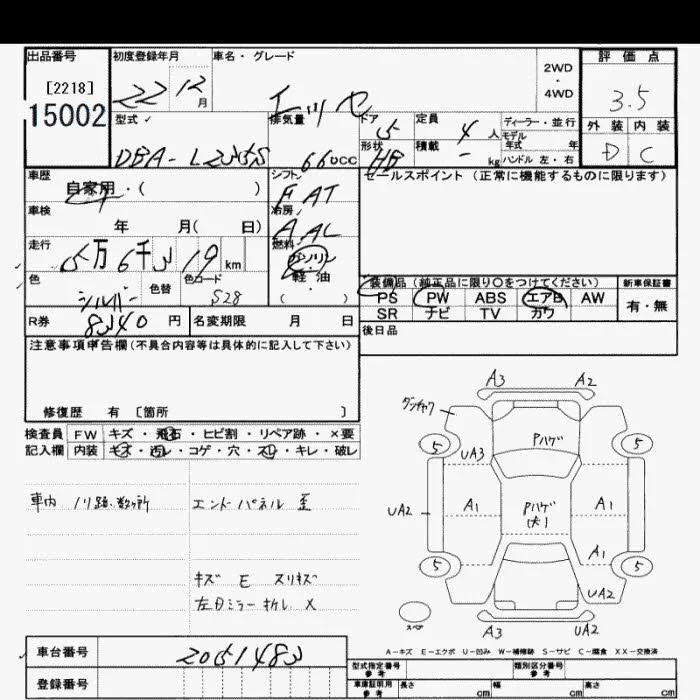 出品番号 初度登録年月 車名・グレード 評価点
[2218] 2WD
15002 22 12月 ・
エッセ 4WD 3.5
型式 排気量 ドア 定員 ディーラー・並行 外装 内装
DBA-L235S 660cc 5 4人 モデル年式 年 D C
形状 HB 積載 - kg ハンドル 左・右
車歴 シフト セールスポイント(正常に機能するものに限ります)
自家用・( ) FAT
車検 冷房
年 月( 日) AAC
走行 燃料
5万6千 19km ガソリン
軽・油
色 色替 色コード ( )
シルバー S28
装備品(純正品に限り○をつけてください) 新車保証書
PS PW ABS エアB AW 有・無
SR ナビ TV カワ
R券 円 名変期限 月 日 後日品
注意事項申告欄(不具合内容等は具体的に記入して下さい)
修復歴 有 〔箇所 〕
検査員 FW キズ・飛石・ヒビ割・リペア跡・×要
記入欄 内装 キズ・汚レ・コゲ・穴・スレ・キレ・破レ
車内 ノリ跡、数ヶ所 エンドパネル 歪
キズ E スリキズ
左Dミラー 折レ X
A3 A2
5 UA3 Pハゲ 5
UA2 A1 Pハゲ(大) A1
A1
5 5
UA2
スペア A3 UA2
A-キズ E-エクボ U-凹み W-補修跡 S-サビ C-腐食 XX-交換済
車台番号
登録番号
型式指定番号 参考 類別区分番号 参考
車庫証明用 参考 長さ cm 幅 cm 高さ cm